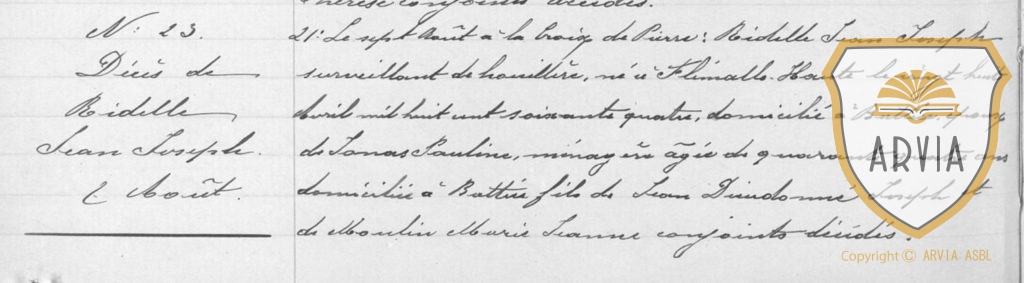 Thérèse conjoints décédés.
N: 23.
Décès de
Ridelle
Jean Joseph.
Août.
21: Le sept Août à la croix de Pierre: Ridelle Jean Joseph
surveillant de houillère, né à Flémalle-Haute le vingt huit
Avril mil huit cent soixante quatre, domicilié à Battice, époux
de Jonas Pauline, ménagère âgée de quarante quatre ans
domiciliée à Battice fils de Jean Dieudonné Joseph et
de Moulin Marie Jeanne conjoints décédés.
ARVIA
Copyright © ARVIA ASBL